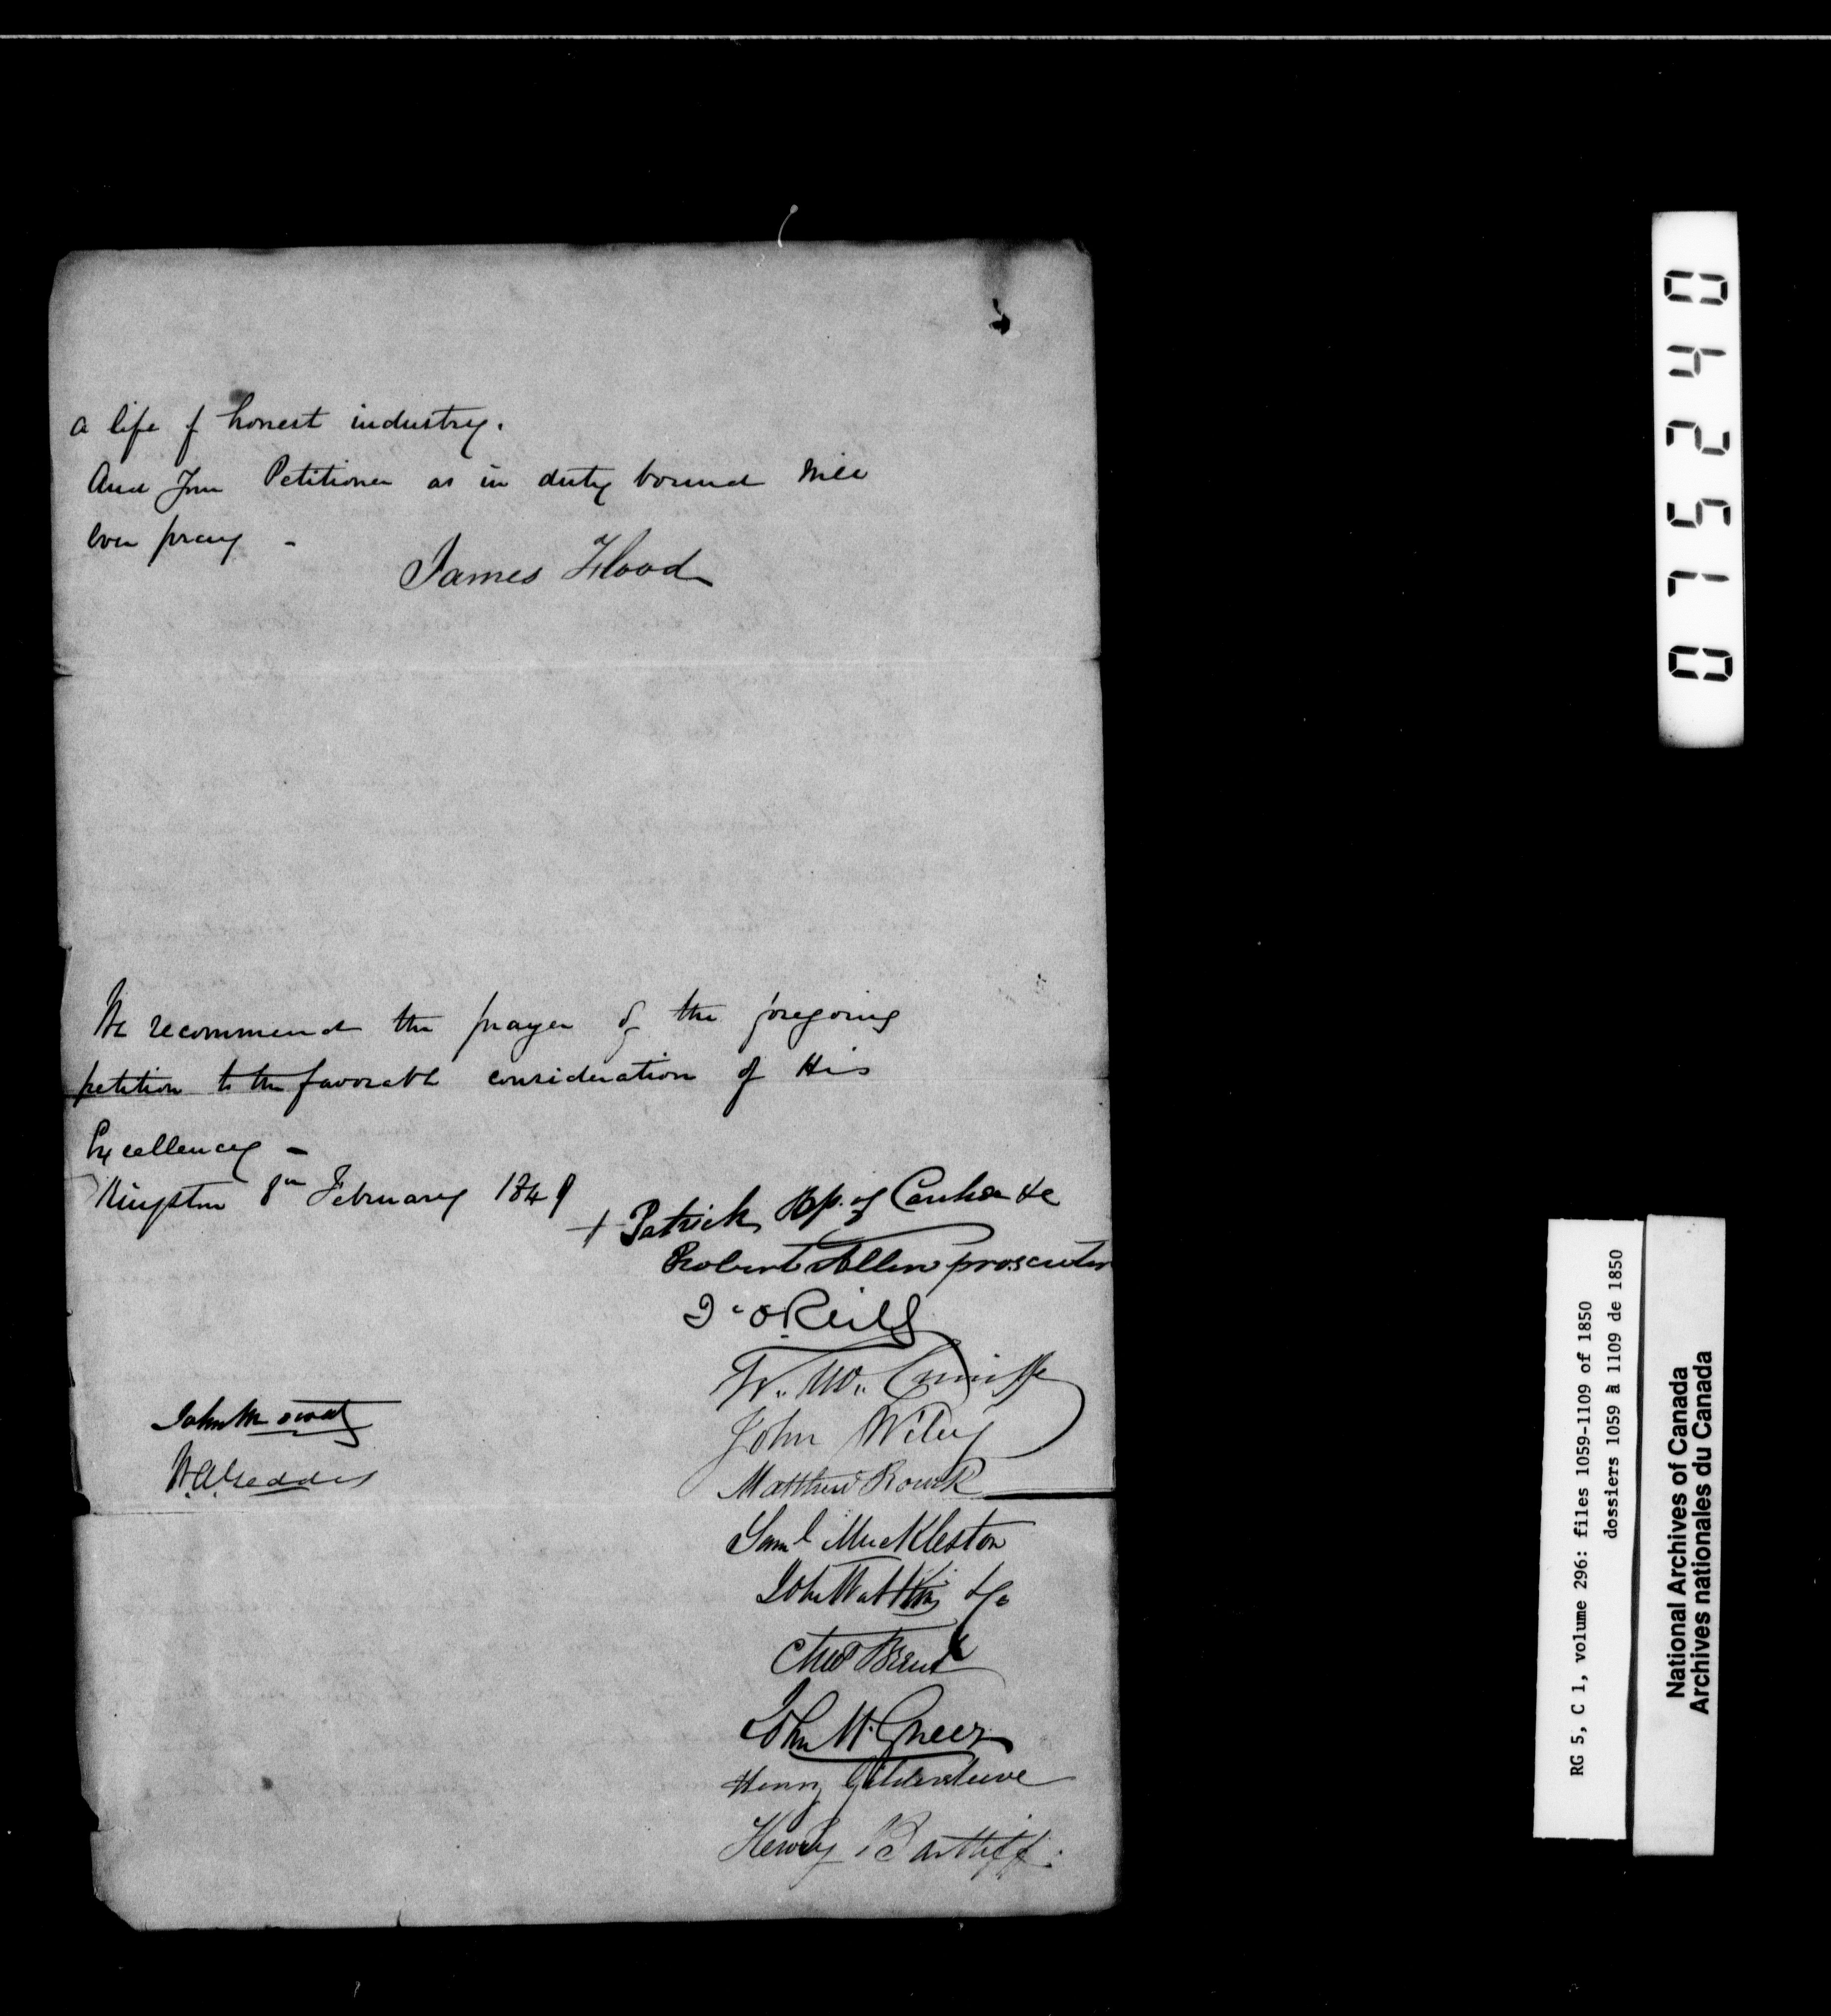 a life of honest industry.
And Your Petitioner as in duty bound will
ever pray -
James Flood
We recommend the prayer of the foregoing
petition to the favorable consideration of His
Excellency -
Kingston 8th February 1849
+ Patrick Bp. of Carrhae &c
Robert Allen prosecutor
O'Reilly
John Wiley
Matthew Rourk
Saml Muckleston
John Watkins &Co
Brent
John McGreer
Henry Gildersleeve
Henry Bartliff
John Mowat
W.A. Geddes
015240
RG 5, C 1, volume 296: files 1059-1109 of 1850
dossiers 1059 à 1109 de 1850
National Archives of Canada
Archives nationales du Canada